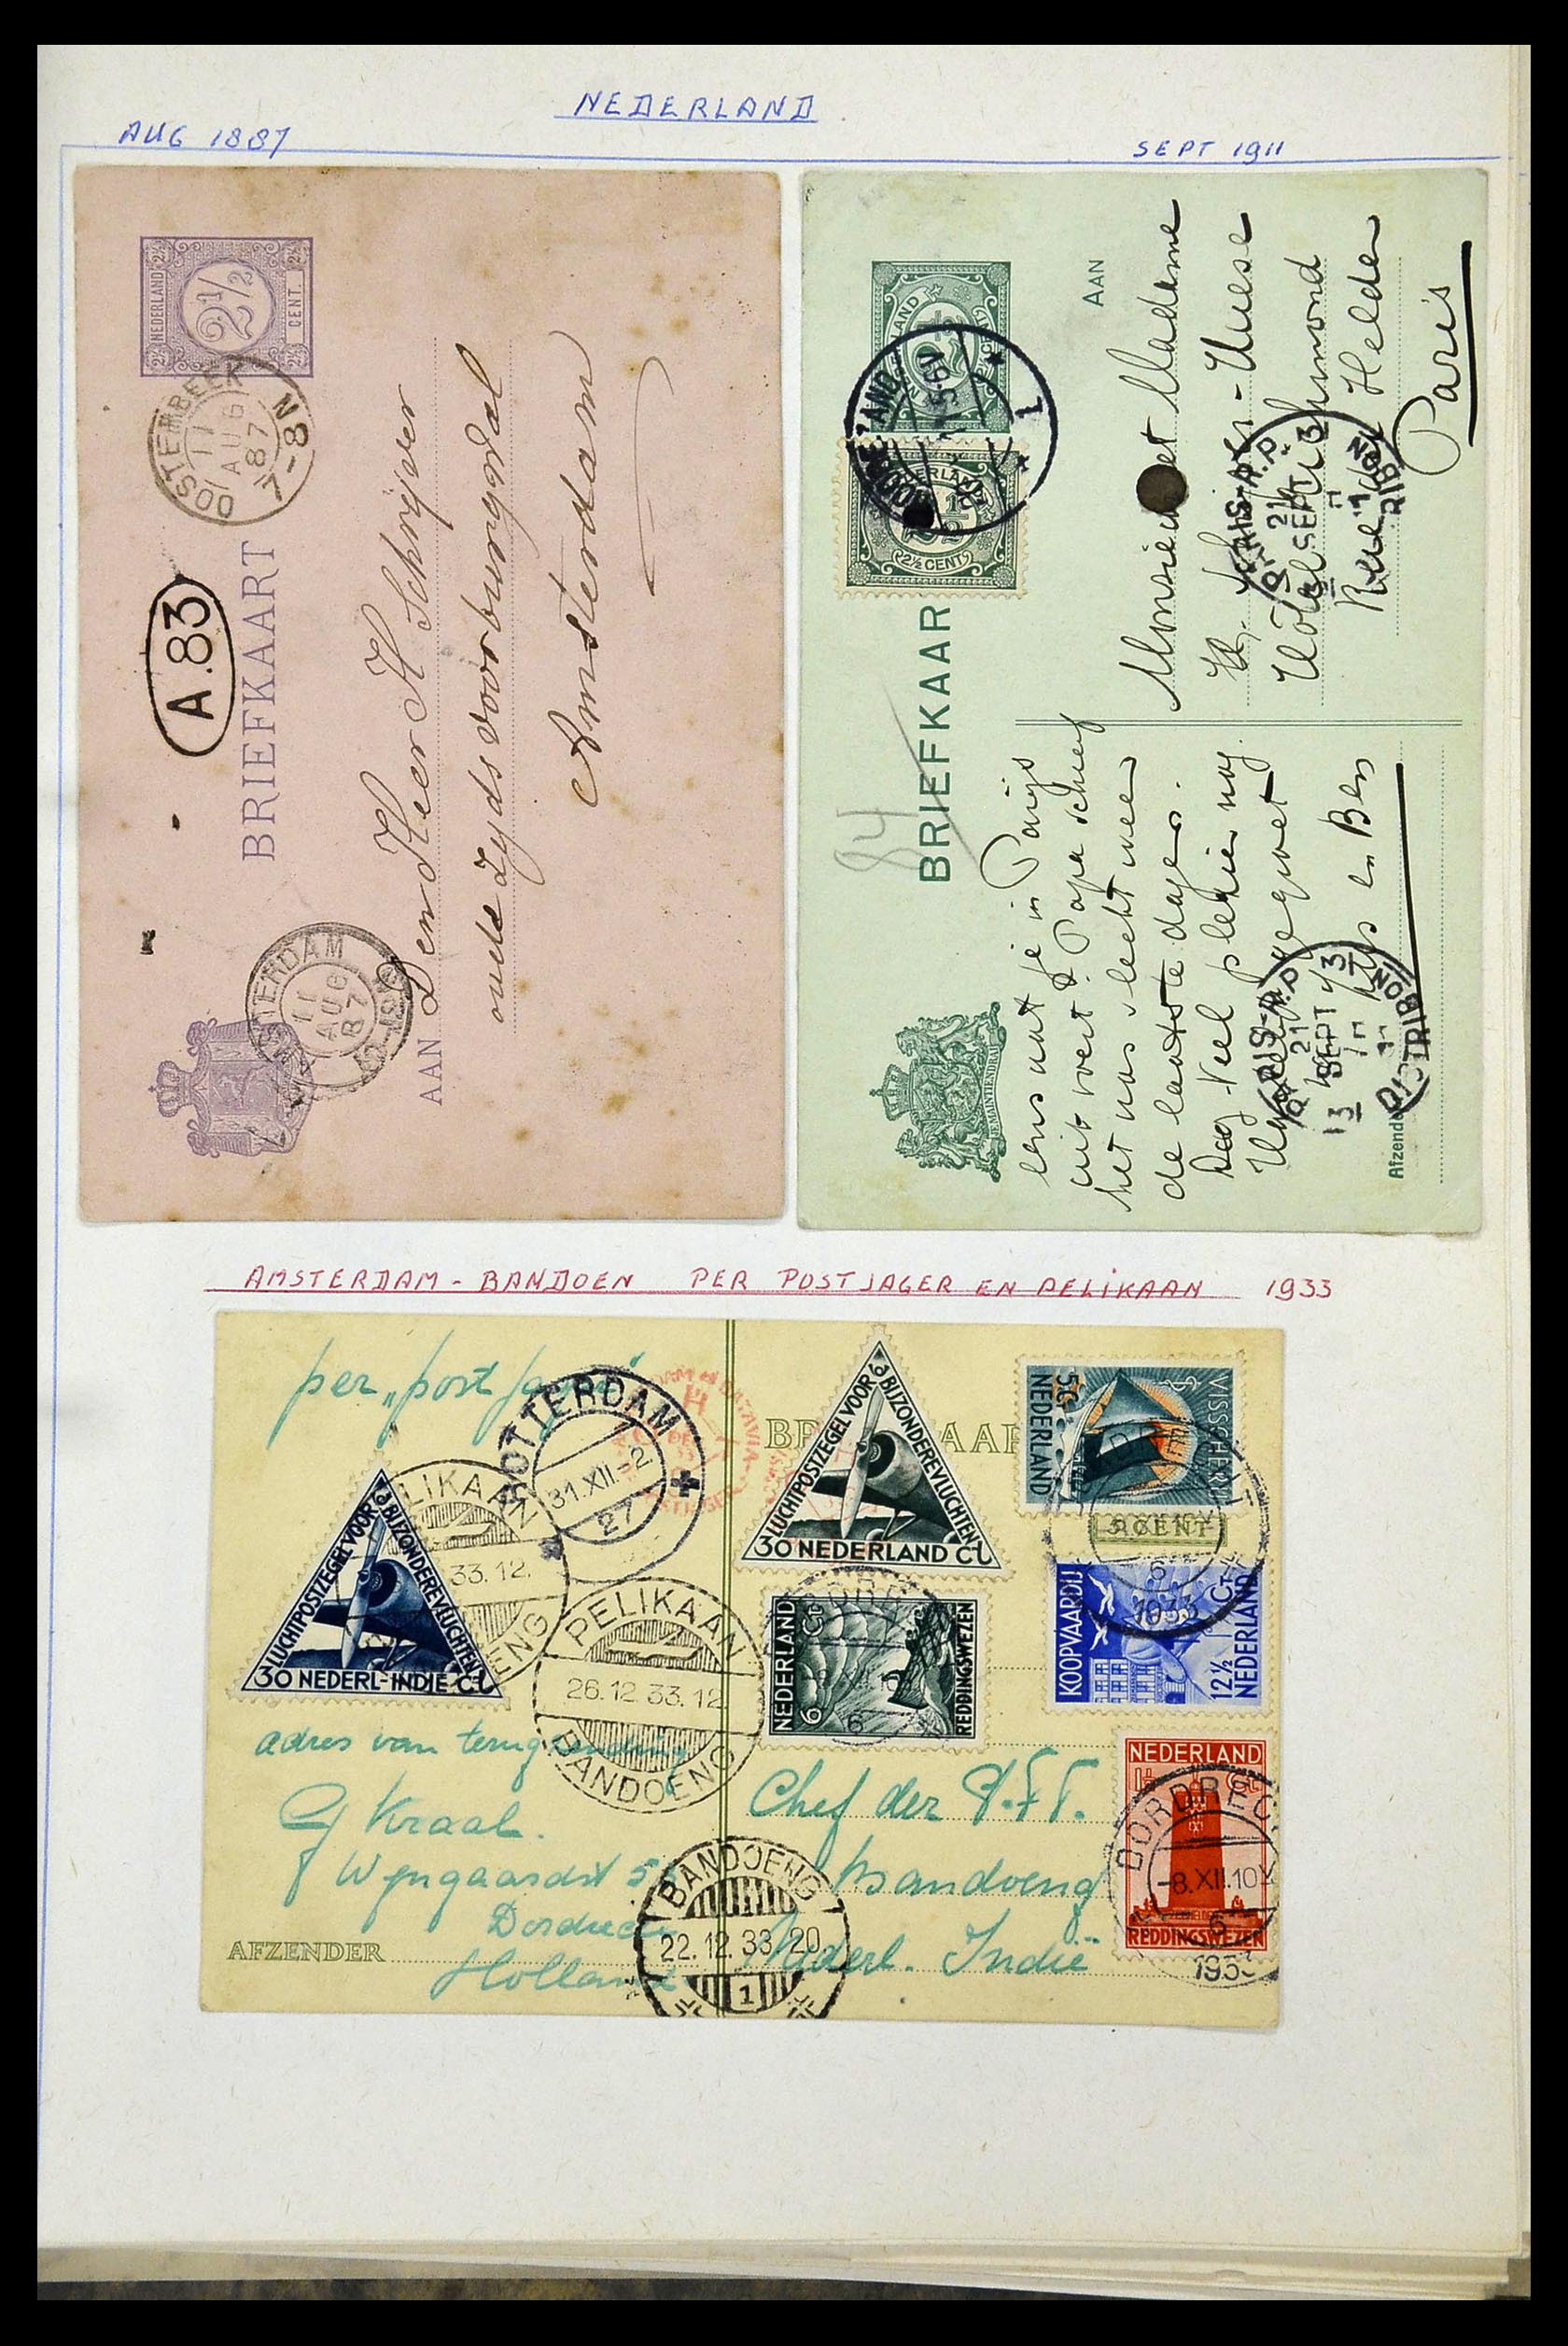 NEDERLAND
AUG 1887
SEPT 1911
NEDERLAND
2½ CENT.
OOSTERBEEK
11 AUG 87
7-8 N
A.83
BRIEFKAART
AMSTERDAM
11 AUG 87
AAN Den Heer H Schrijver
oude Zyds voorburgwal
Amsterdam
2½ CENT
1
BRIEFKAART
84
JE MAINTIENDRAI
AAN
Monsieur et Madame
Hotel Richmond
Rue du Helder
Paris
je in Parijs
uit voert. Papa schreef
het was slecht weer
de laatste dagen.
Dag Veel plezier nog.
en Ben
PARIS
21 SEPT 11
DISTRIBON
PARIS
21 SEPT 11
DISTRIBON
Afzender
AMSTERDAM - BANDOEN PER POSTJAGER EN PELIKAAN 1933
per "postjager"
ROTTERDAM
31.XII.-2
27
BATAVIA
3 LUCHTPOSTZEGEL VOOR 3 BIJZONDERE VLUCHTEN
30 NEDERLAND Ct
VISSCHERIJ
5 Ct
NEDERLAND
5 CENT
6
1933
KOOPVAARDIJ
12½ Ct
NEDERLAND
3 LUCHTPOSTZEGEL VOOR 3 BIJZONDERE VLUCHTEN
30 NEDERL-INDIE Ct
PELIKAAN
33.12.
PELIKAAN
26.12.33.12
BANDOENG
NEDERLAND
6 Ct
REDDINGSWEZEN
NEDERLAND
1½ Ct
REDDINGSWEZEN
DORDRECHT
-8.XII.10V
6
1933
adres van terugzending
J Kraal.
Wijngaardst
Dordrecht
AFZENDER Holland
BANDOENG
22.12.33.20
1
Chef der P.T.T.
Bandoeng
Nederl. Indië